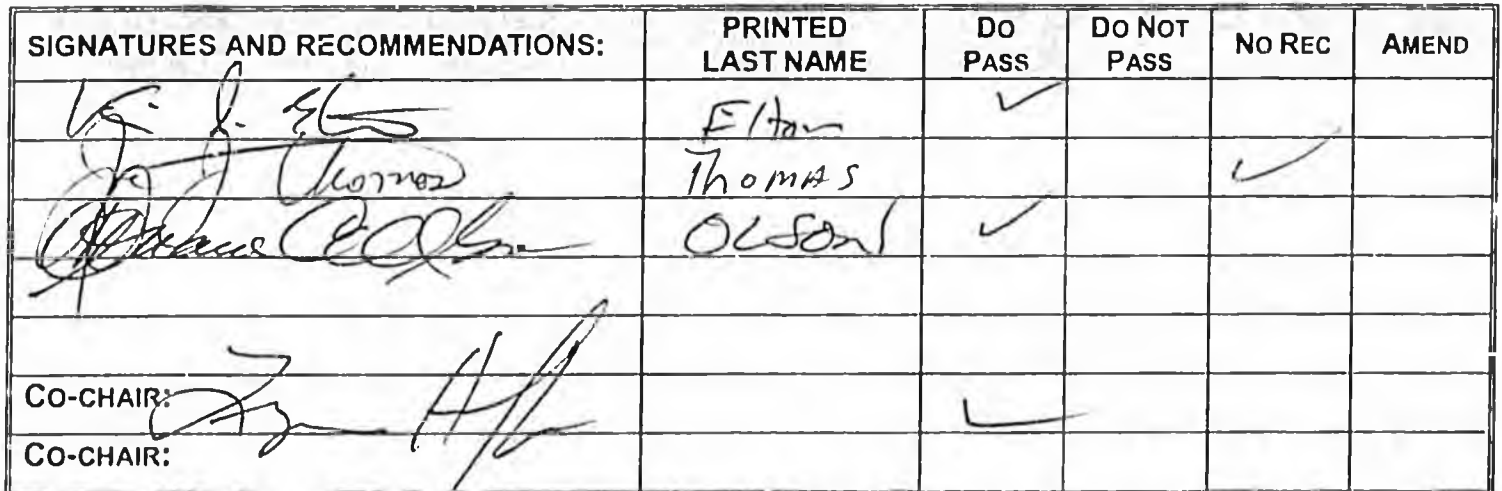 SIGNATURES AND RECOMMENDATIONS: PRINTED LAST NAME DO PASS DO NOT PASS NO REC AMEND
Elton ✓
Thomas THOMAS ✓
OLSON ✓
CO-CHAIR: ✓
CO-CHAIR: